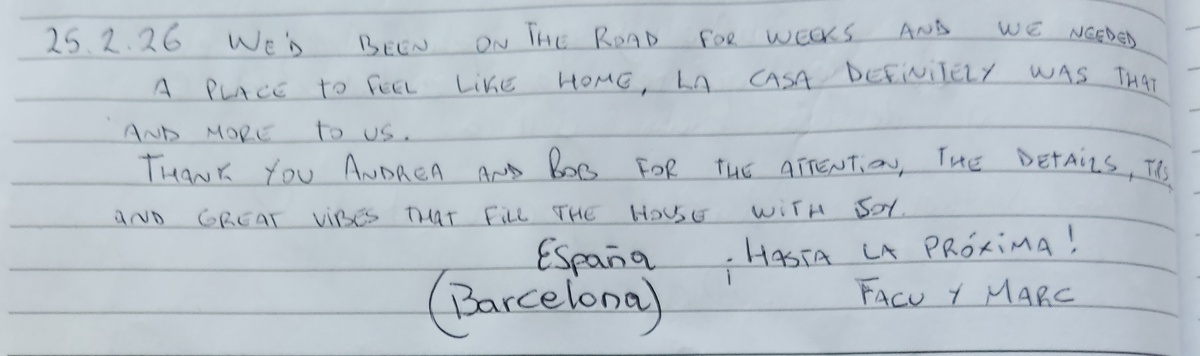 25.2.26 WE'D BEEN ON THE ROAD FOR WEEKS AND WE NEEDED
A PLACE TO FEEL LIKE HOME, LA CASA DEFINITELY WAS THAT
AND MORE TO US.
THANK YOU ANDREA AND BOB FOR THE ATTENTION, THE DETAILS, TIPS
AND GREAT VIBES THAT FILL THE HOUSE WITH JOY.
España ¡HASTA LA PRÓXIMA!
(Barcelona) FACU Y MARC